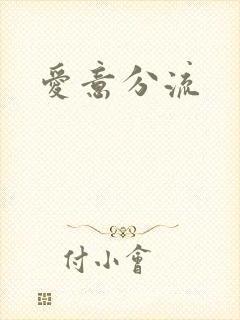 愛意分流
付小會